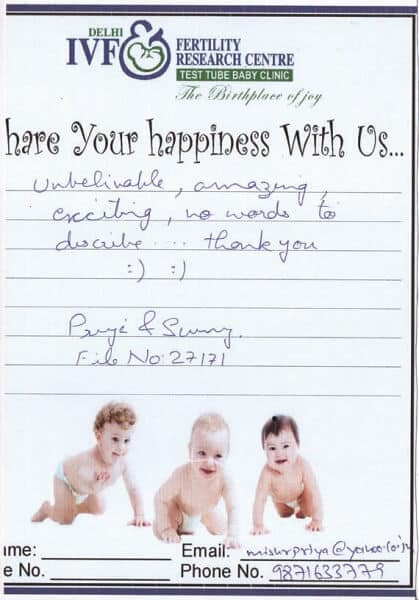 DELHI
IVF
FERTILITY
RESEARCH CENTRE
TEST TUBE BABY CLINIC
The Birthplace of joy
hare Your happiness With Us...
Unbelivable, amazing,
exciting, no words to
discribe .... thank you
:) :)
& Sunny.
File No: 27171
ame:
Email: mishrpriya@yahoo.co.in
e No.
Phone No. 9871633779